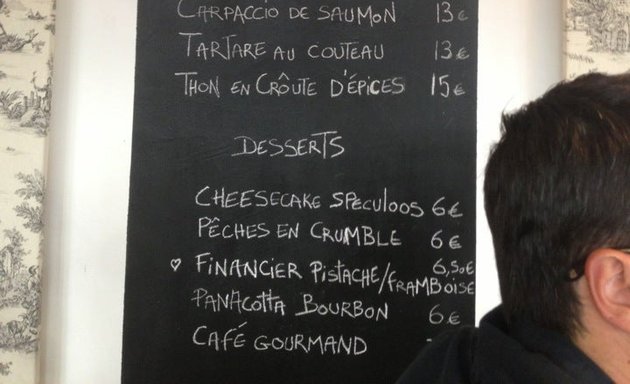 CARPACCIO DE SAUMON 13€
TARTARE AU COUTEAU 13€
THON EN CROÛTE D'ÉPICES 15€
DESSERTS
CHEESECAKE SPECULOOS 6€
PÊCHES EN CRUMBLE 6€
♡ FINANCIER PISTACHE/FRAMBOISE 6,50€
PANACOTTA BOURBON 6€
CAFÉ GOURMAND